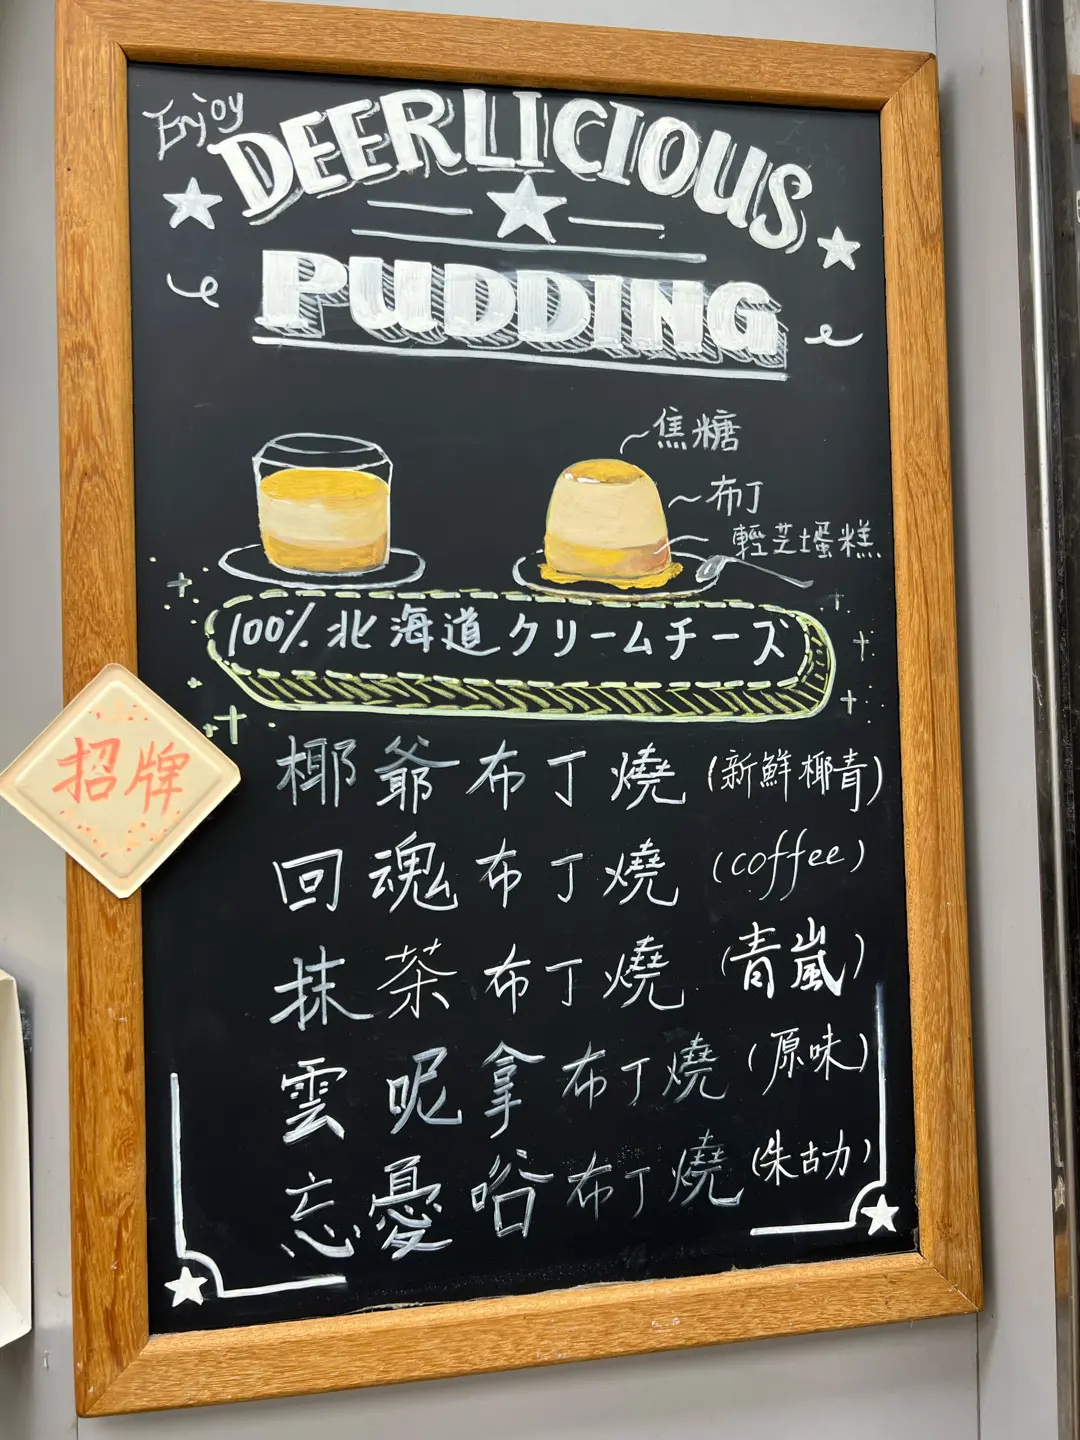 Enjoy
DEERLICIOUS
PUDDING
焦糖
布丁
輕芝士蛋糕
100% 北海道クリームチーズ
招牌
椰爺布丁燒 (新鮮椰青)
回魂布丁燒 (coffee)
抹茶布丁燒 (青嵐)
雲呢拿布丁燒 (原味)
忘憂唂布丁燒 (朱古力)